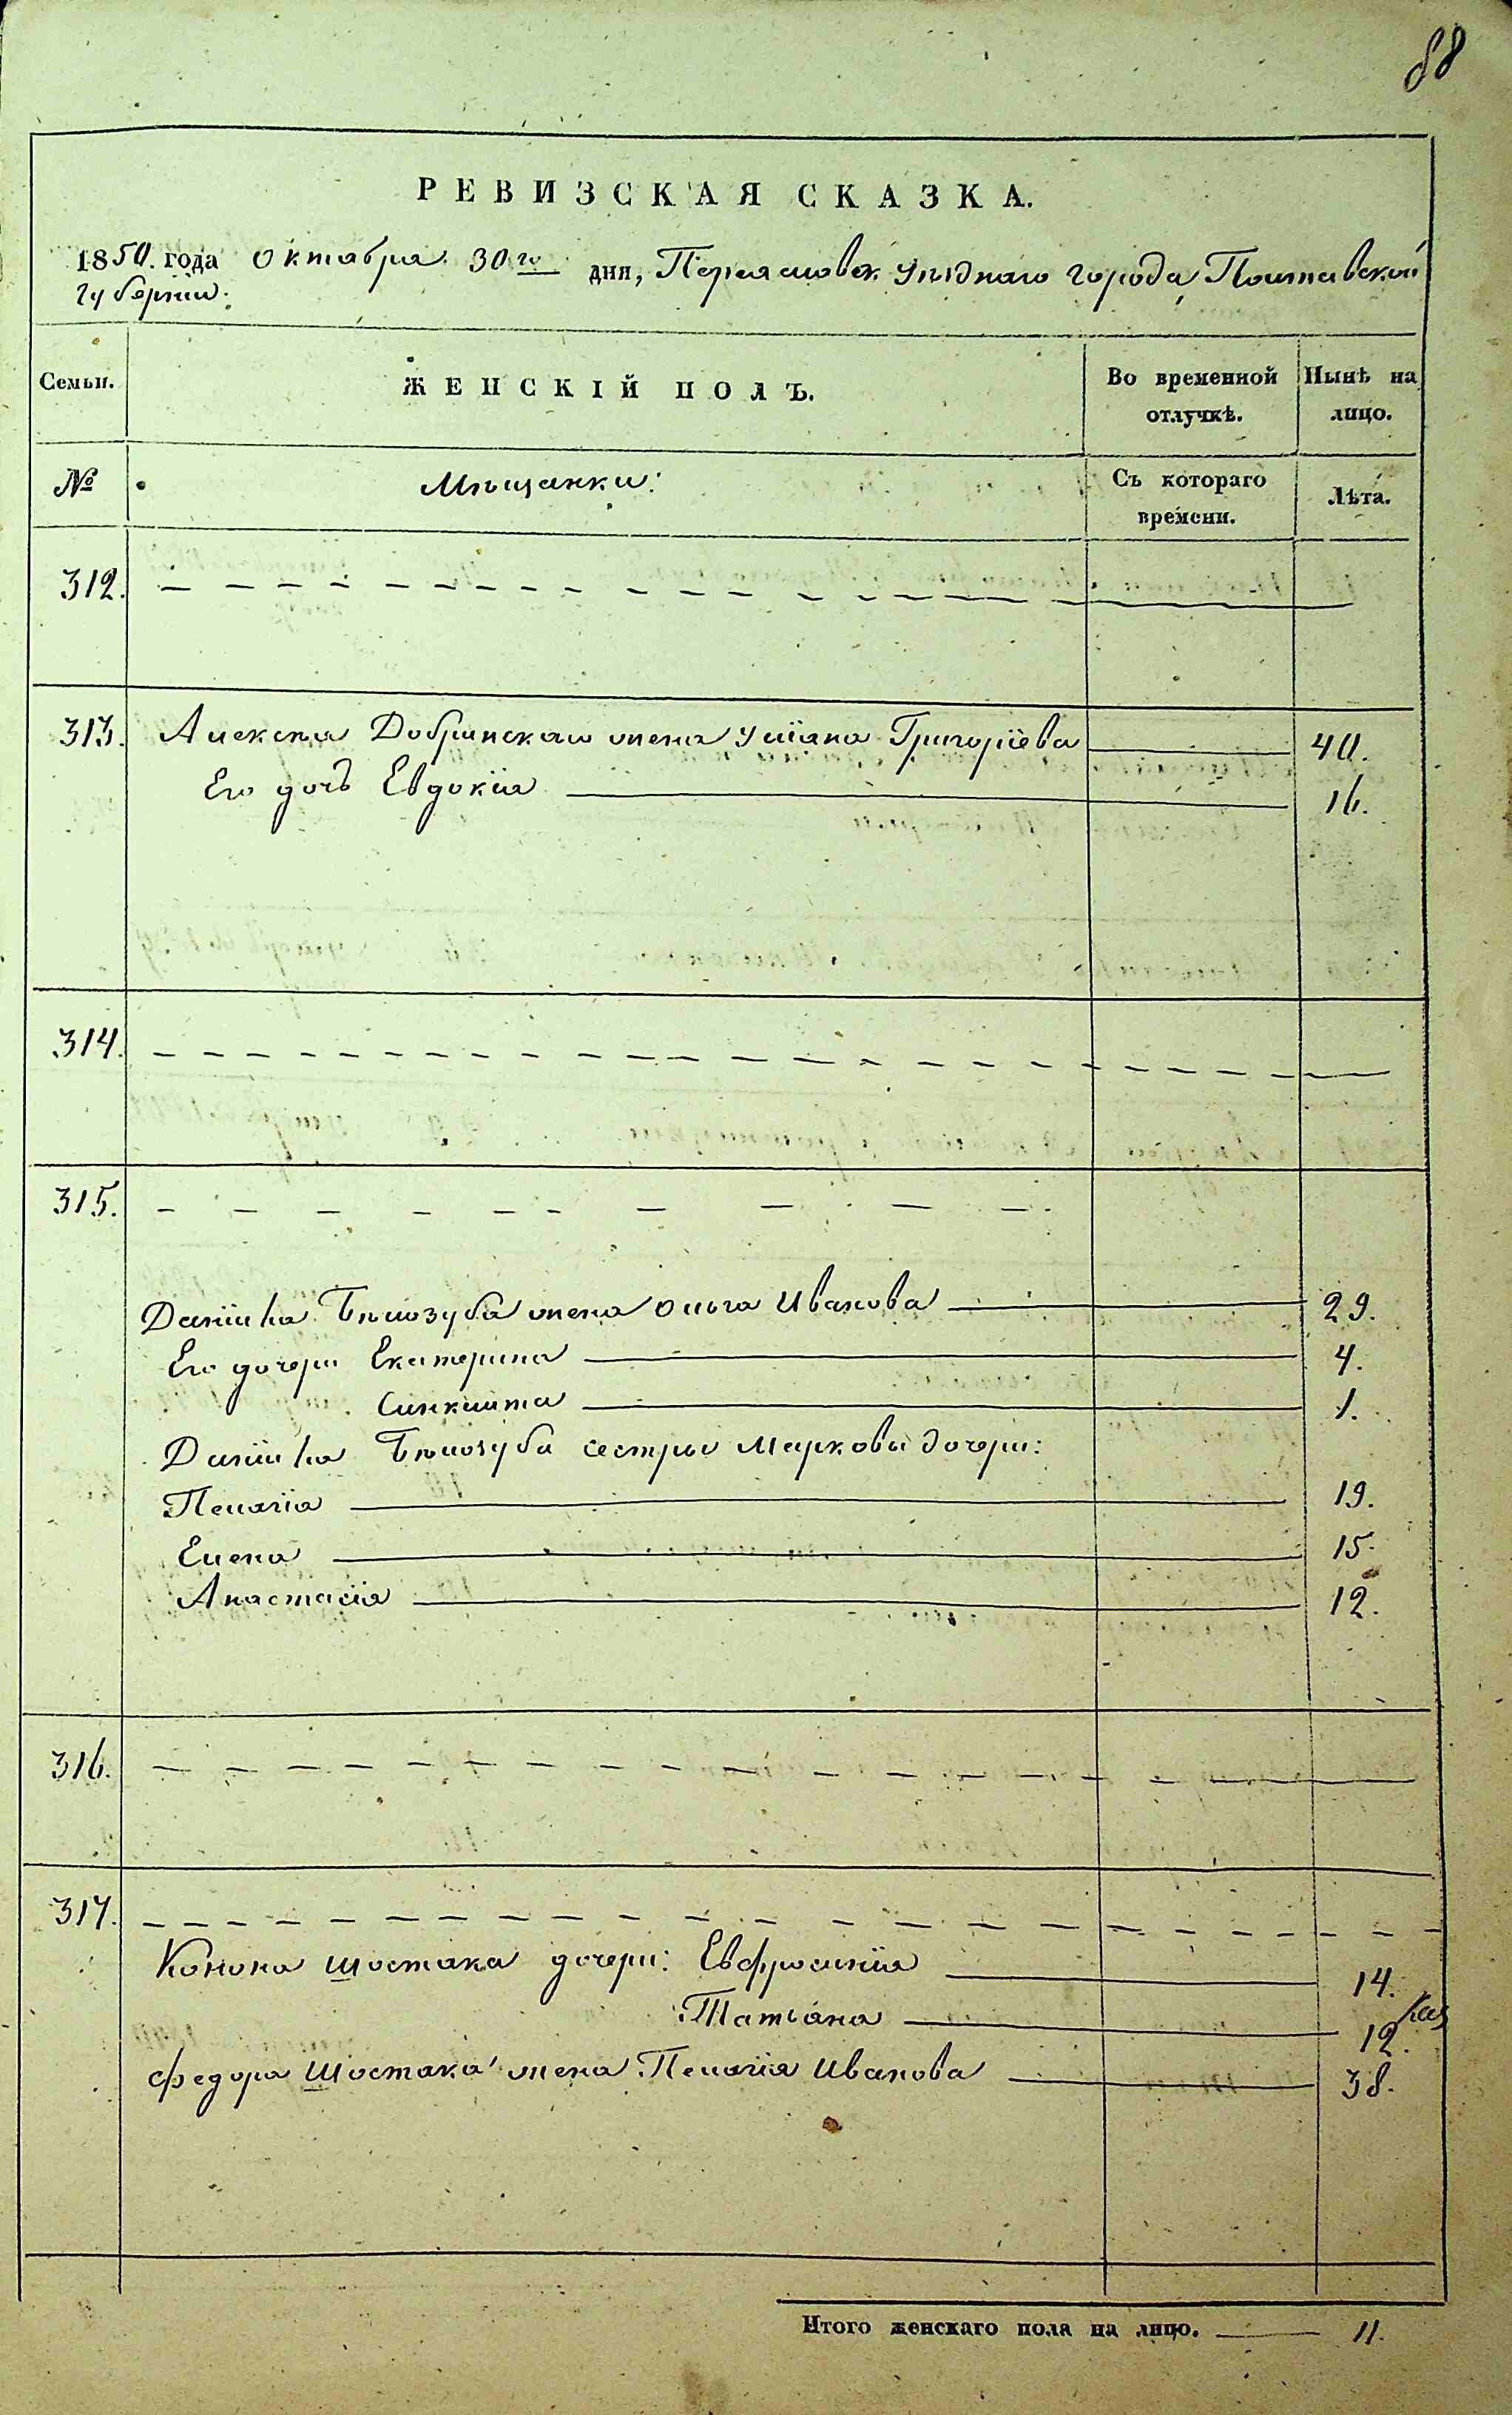 88
РЕВИЗСКАЯ СКАЗКА.
1850. года октября 30го дня, Переяславск уѣзднаго города, Полтавской
губерніи.
Семьи. ЖЕНСКІЙ ПОЛЪ. Во временной отлучкѣ. Нынѣ на лицо.
№ Мѣщанки: Съ котораго времени. Лѣта.
312.
313. Алексѣя Добринскаго жена Уліяна Григоріева 40.
Его дочь Евдокія 16.
314.
315.
Даніила Бѣлозуба жена Ольга Иванова 29.
Его дочери Екатерина 4.
Синклита 1.
Даніила Бѣлозуба сестры Марковы дочери:
Пелагія 19.
Елена 15.
Анастасія 12.
316.
317.
Конона Шостака дочери: Евфросинія 14.
Татіана 12.
Федора Шостака жена Пелагія Иванова 38.
Итого женскаго пола на лицо. 11.